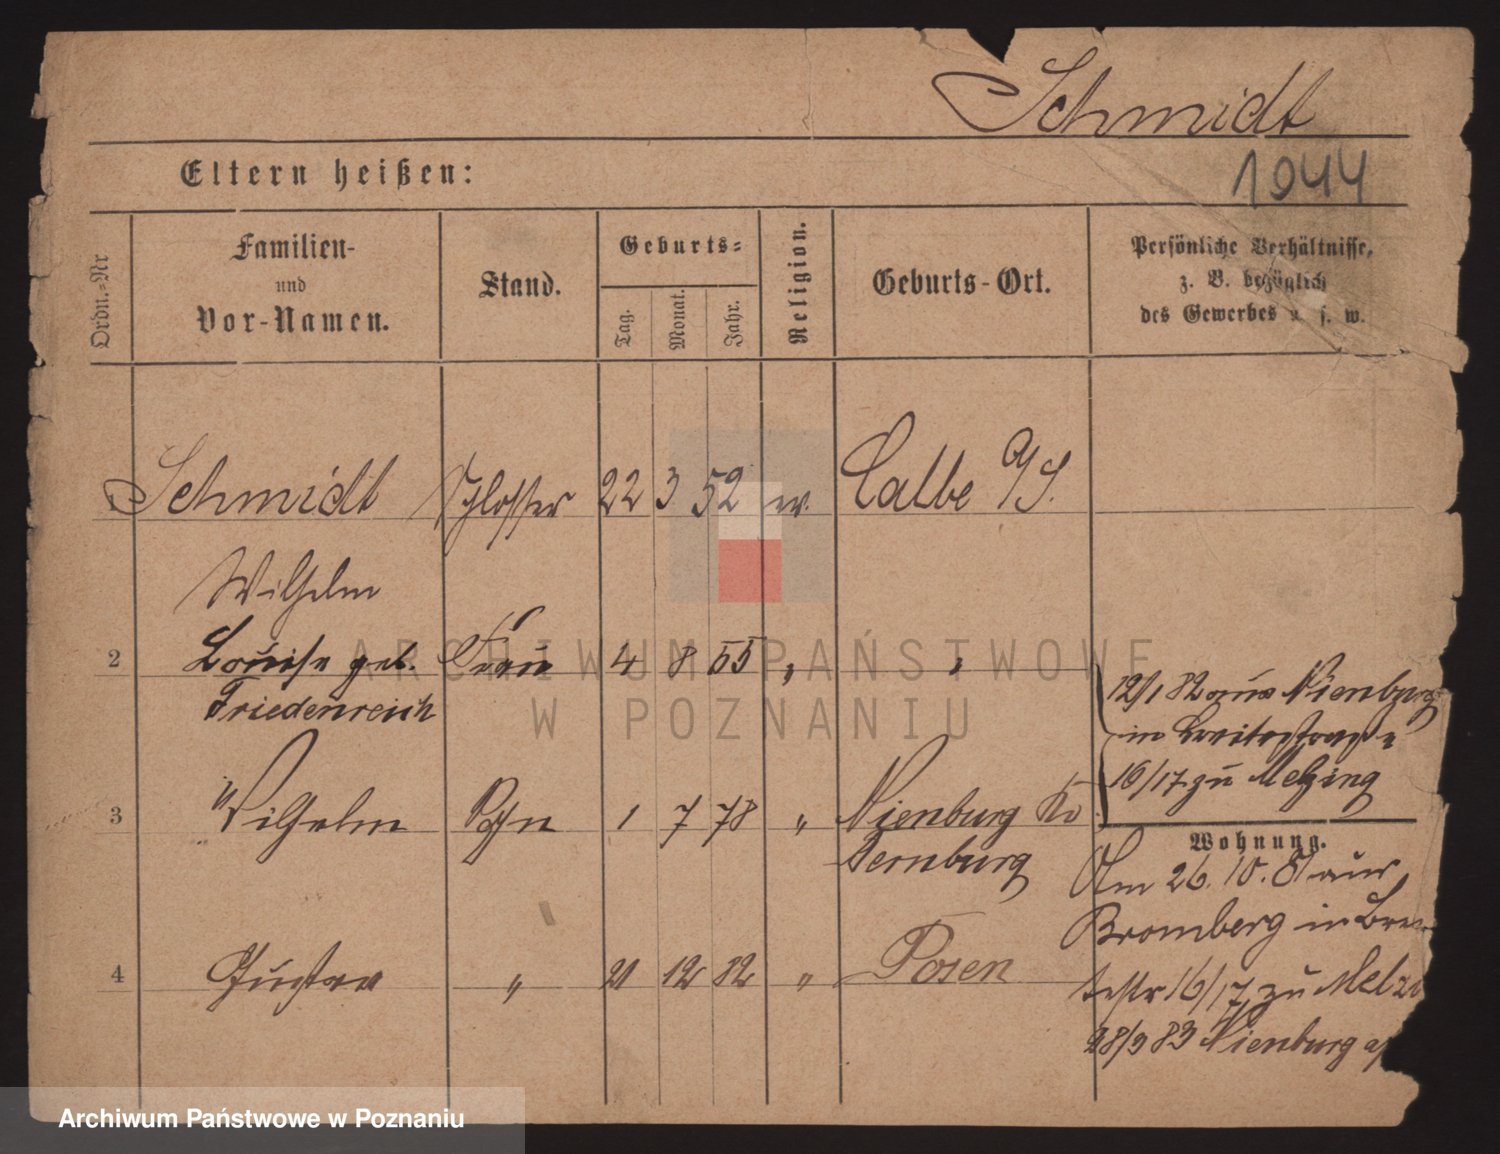 Schmidt
1944
Eltern heißen:
Ordn.-Nr
Familien-
und
Vor-Namen.
Stand.
Geburts-
Tag.
Monat.
Jahr.
Religion.
Geburts-Ort.
Persönliche Verhältnisse,
z. B. bezüglich
des Gewerbes u. s. w.
Schmidt Schlosser 22 3 52 ev. Calbe a/S.
Wilhelm
2 Louise geb. Frau 4 8 55 " "
Friedenreich
12/1 82 aus Nienburg
in Breitestraße
16/17 zu Melzing
3 Wilhelm Sohn 1 7 78 " Nienburg
Bernburg
Wohnung.
Am 26. 10. 81 aus
Bromberg in Brei
4 Gustav " 21 12 82 " Posen
testr 16/17 zu Melzi
28/3 83 Nienburg
ARCHIWUM PAŃSTWOWE
W POZNANIU
Archiwum Państwowe w Poznaniu